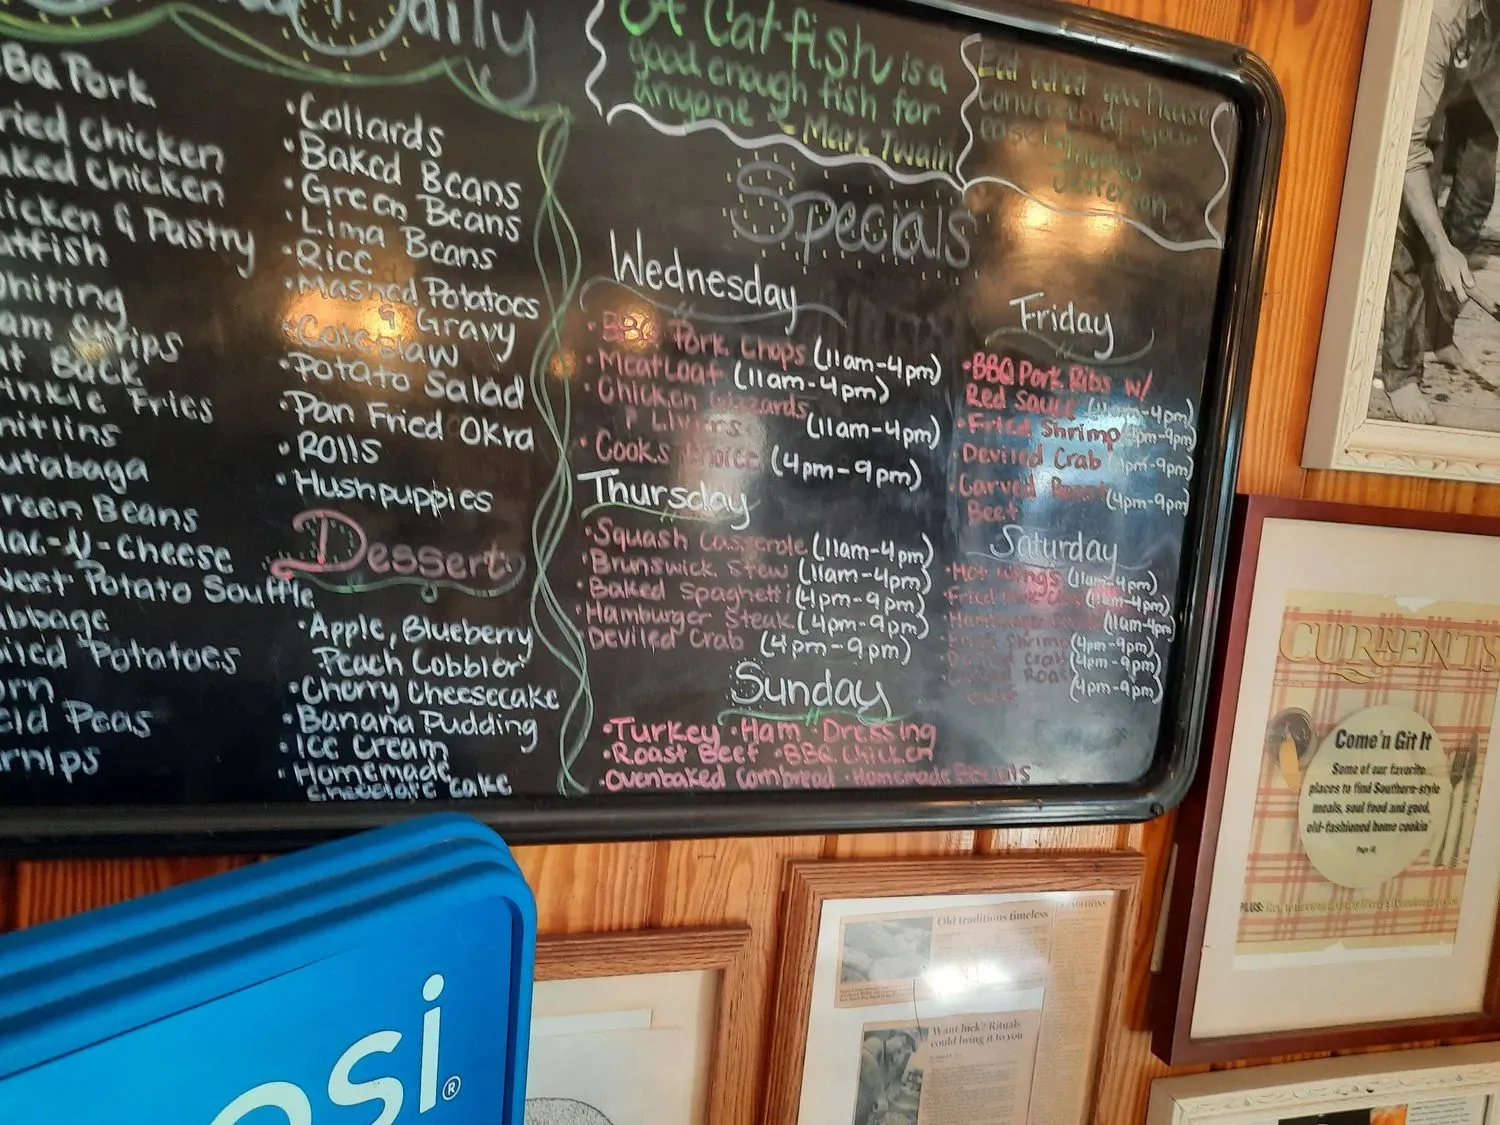 Daily
BBQ Pork
ried Chicken
aked Chicken
icken & Pastry
atfish
hiting
am Strips
at Back
inkle Fries
nitlins
utabaga
reen Beans
ac-N-Cheese
weet Potato Souffle
abbage
iled Potatoes
orn
eld Peas
urnips
• Collards
• Baked Beans
• Green Beans
• Lima Beans
• Rice
• Mashed Potatoes
& Gravy
• Coleslaw
• Potato Salad
• Pan Fried Okra
• Rolls
• Hushpuppies
Dessert
• Apple, Blueberry
Peach Cobbler
• Cherry Cheesecake
• Banana Pudding
• Ice Cream
• Homemade
Chocolate Cake
A Catfish is a
good enough fish for
anyone - Mark Twain
Eat what you Please
Converse
your
Jefferson
Specials
Wednesday
• BBQ Pork Chops (11am-4pm)
• Meatloaf (11am-4pm)
• Chicken Gizzards
& Livers (11am-4pm)
• Cooks Choice (4pm-9pm)
Thursday
• Squash Casserole (11am-4pm)
• Brunswick Stew (11am-4pm)
• Baked Spaghetti (4pm-9pm)
• Hamburger Steak (4pm-9pm)
Deviled Crab (4pm-9pm)
Friday
• BBQ Pork Ribs w/
Red Sauce (11am-4pm)
• Fried Shrimp (4pm-9pm)
Deviled Crab (4pm-9pm)
• Carved Roast (4pm-9pm)
Beef
Saturday
• Hot Wings (11am-4pm)
• Fried (11am-4pm)
• Hamburger (11am-4pm)
Shrimp (4pm-9pm)
Crab (4pm-9pm)
Roast
(4pm-9pm)
Sunday
• Turkey • Ham • Dressing
• Roast Beef • BBQ Chicken
• Ovenbaked Cornbread • Homemade Biscuits
CURRENTS
Come'n Git It
Some of our favorite
places to find Southern-style
meals, soul food and good,
old-fashioned home cookin'
Page 10
PLUS:
Old traditions timeless
TRADITIONS
Want luck? Rituals
could bring it to you
psi®